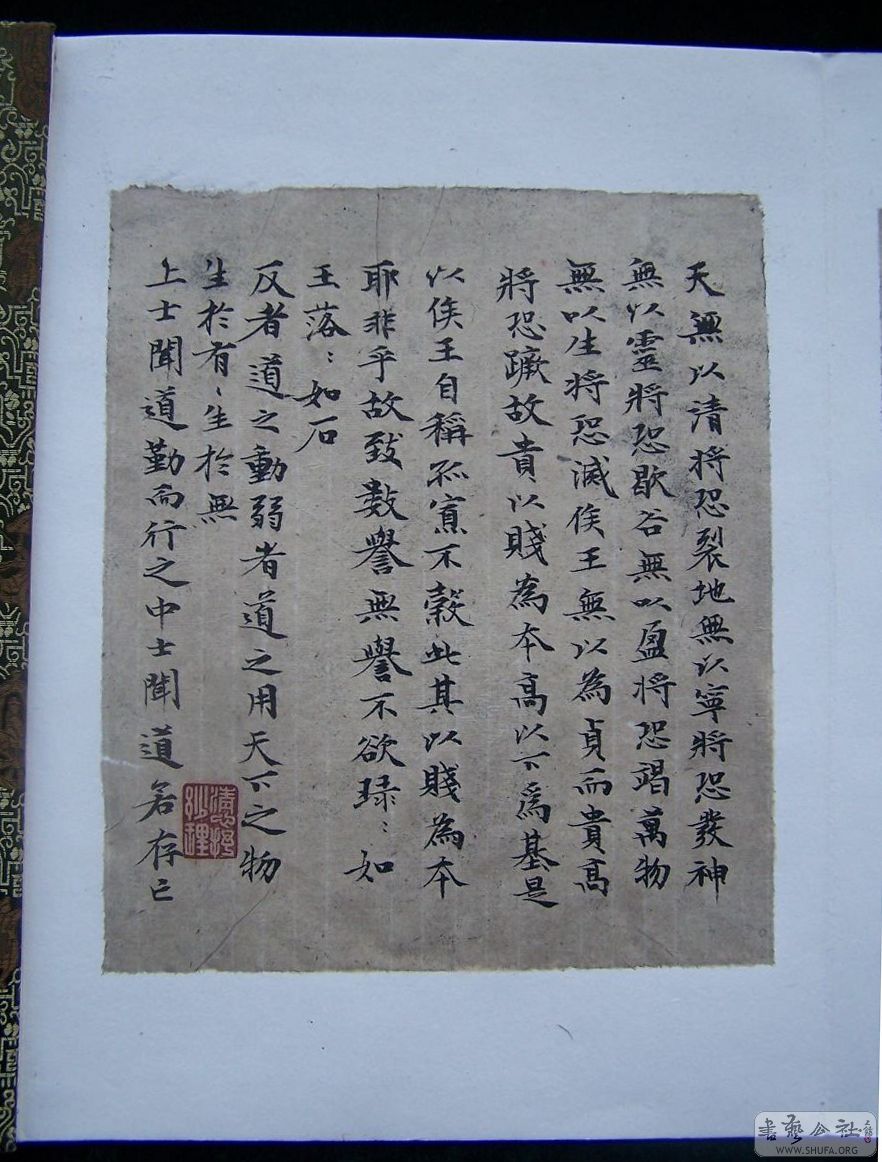 天無以清將恐裂地無以寧將恐發神
無以靈將恐歇谷無以盈將恐竭萬物
無以生將恐滅侯王無以為貞而貴高
將恐蹶故貴以賤為本高以下為基是
以侯王自稱孤寡不穀此其以賤為本
耶非乎故致數譽無譽不欲琭：如
王落：如石
反者道之動弱者道之用天下之物
生於有：生於無
上士聞道勤而行之中士聞道若存亡
書藝公社
WWW.SHUFA.ORG